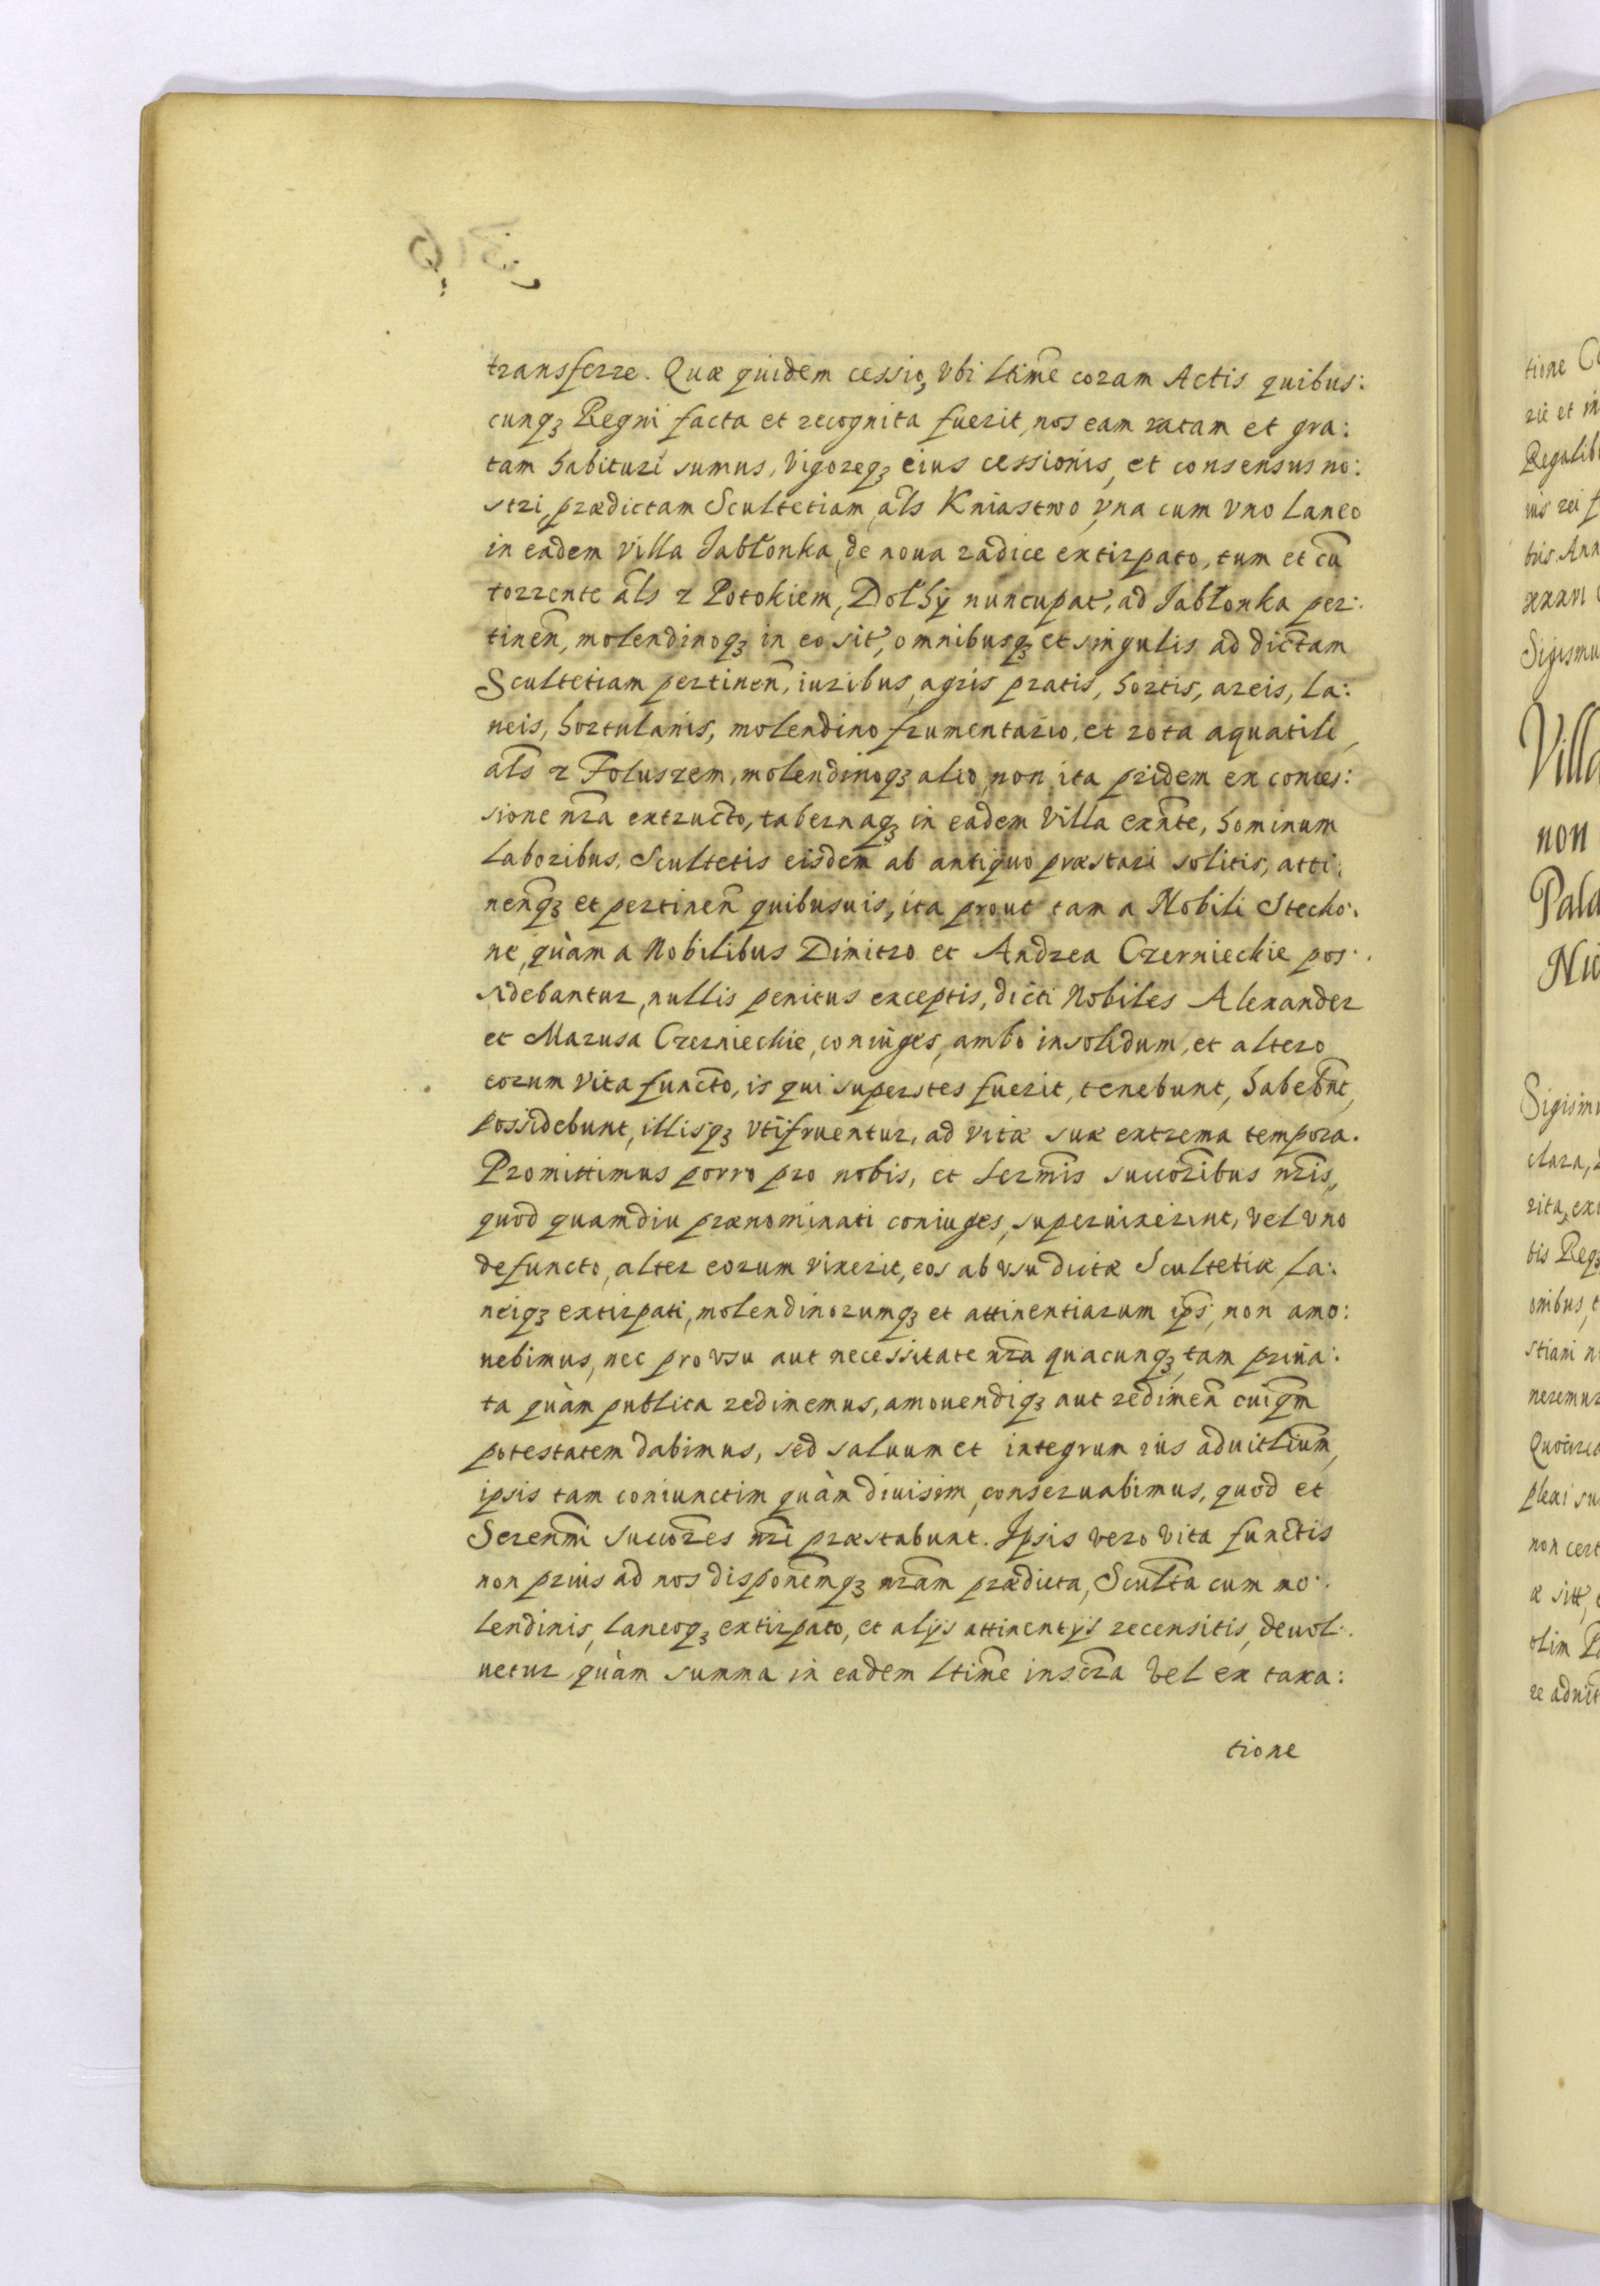 transferre. Quæ quidem cessio, vbi ltime coram Actis quibus:
cunqȝ Regni facta et recognita fuerit, nos eam ratam et gra:
tam habituri sumus, vigoreqȝ eius cessionis, et consensus no:
stri, prædictam Scultetiam, als Kniastwo vna cum vno Laneo
in eadem villa Jabłonka, de noua radice extirpato, tum et cū
torrente als z Potokiem, Dołhÿ nuncupat, ad Jabłonka per:
tinen̄, molendinoqȝ in eo sit, omnibusqȝ et singulis ad dictam
Scultetiam pertinen̄, iuribus, agris pratis, hortis, areis, la:
neis, hortulanis, molendino frumentario, et rota aquatili,
als z Foluszem, molendinoqȝ alio, non ita pridem ex conces:
sione nr̄a extructo, tabernaqȝ in eadem villa exn̄te, hominum
laboribus, Scultetis eisdem ab antiquo præstari solitis, atti:
nen̄qȝ et pertinen̄ quibusuis, ita prout tam a Nobili Stecko:
ne, quàm a Nobilibus Dimitro et Andrea Czernieckie pos:
sidebantur, nullis penitus exceptis, dicti Nobiles Alexander
et Marusa Czernieckie, coniuges, ambo insolidum, et altero
eorum vita functo, is qui superstes fuerit, tenebunt, habebn̄t,
possidebunt, illisqȝ vtifruentur, ad vitæ suæ extrema tempora.
Promittimus porro pro nobis, et Serm̄is succor̄ibus nr̄is,
quod quamdiu prænominati coniuges, superuixerint, vel vno
defuncto, alter eorum vixerit, eos ab vsu dictæ Scultetiæ la:
neiqȝ extirpati, molendinorumqȝ et attinentiarum ip̄s, non amo:
uebimus, nec pro vsu aut necessitate nr̄a quacunqȝ, tam priua:
ta quàm publica redimemus, amouendiqȝ aut redimen̄ cuiqm̄
potestatem dabimus, sed saluum et integrum ius aduitlium̄,
ipsis tam coniunctim quàm diuisim, conseruabimus, quod et
Serenm̄i succor̄es nr̄i præstabunt. Ipsis vero vita functis
non prius ad nos disponem̄qȝ nr̄am prædicta, Scult̄a cum mo:
lendinis, laneoqȝ extirpato, et alijs attinentijs recensitis, deuol:
uetur, quàm summa in eadem ltime inscr̄a vel ex taxa:
tione